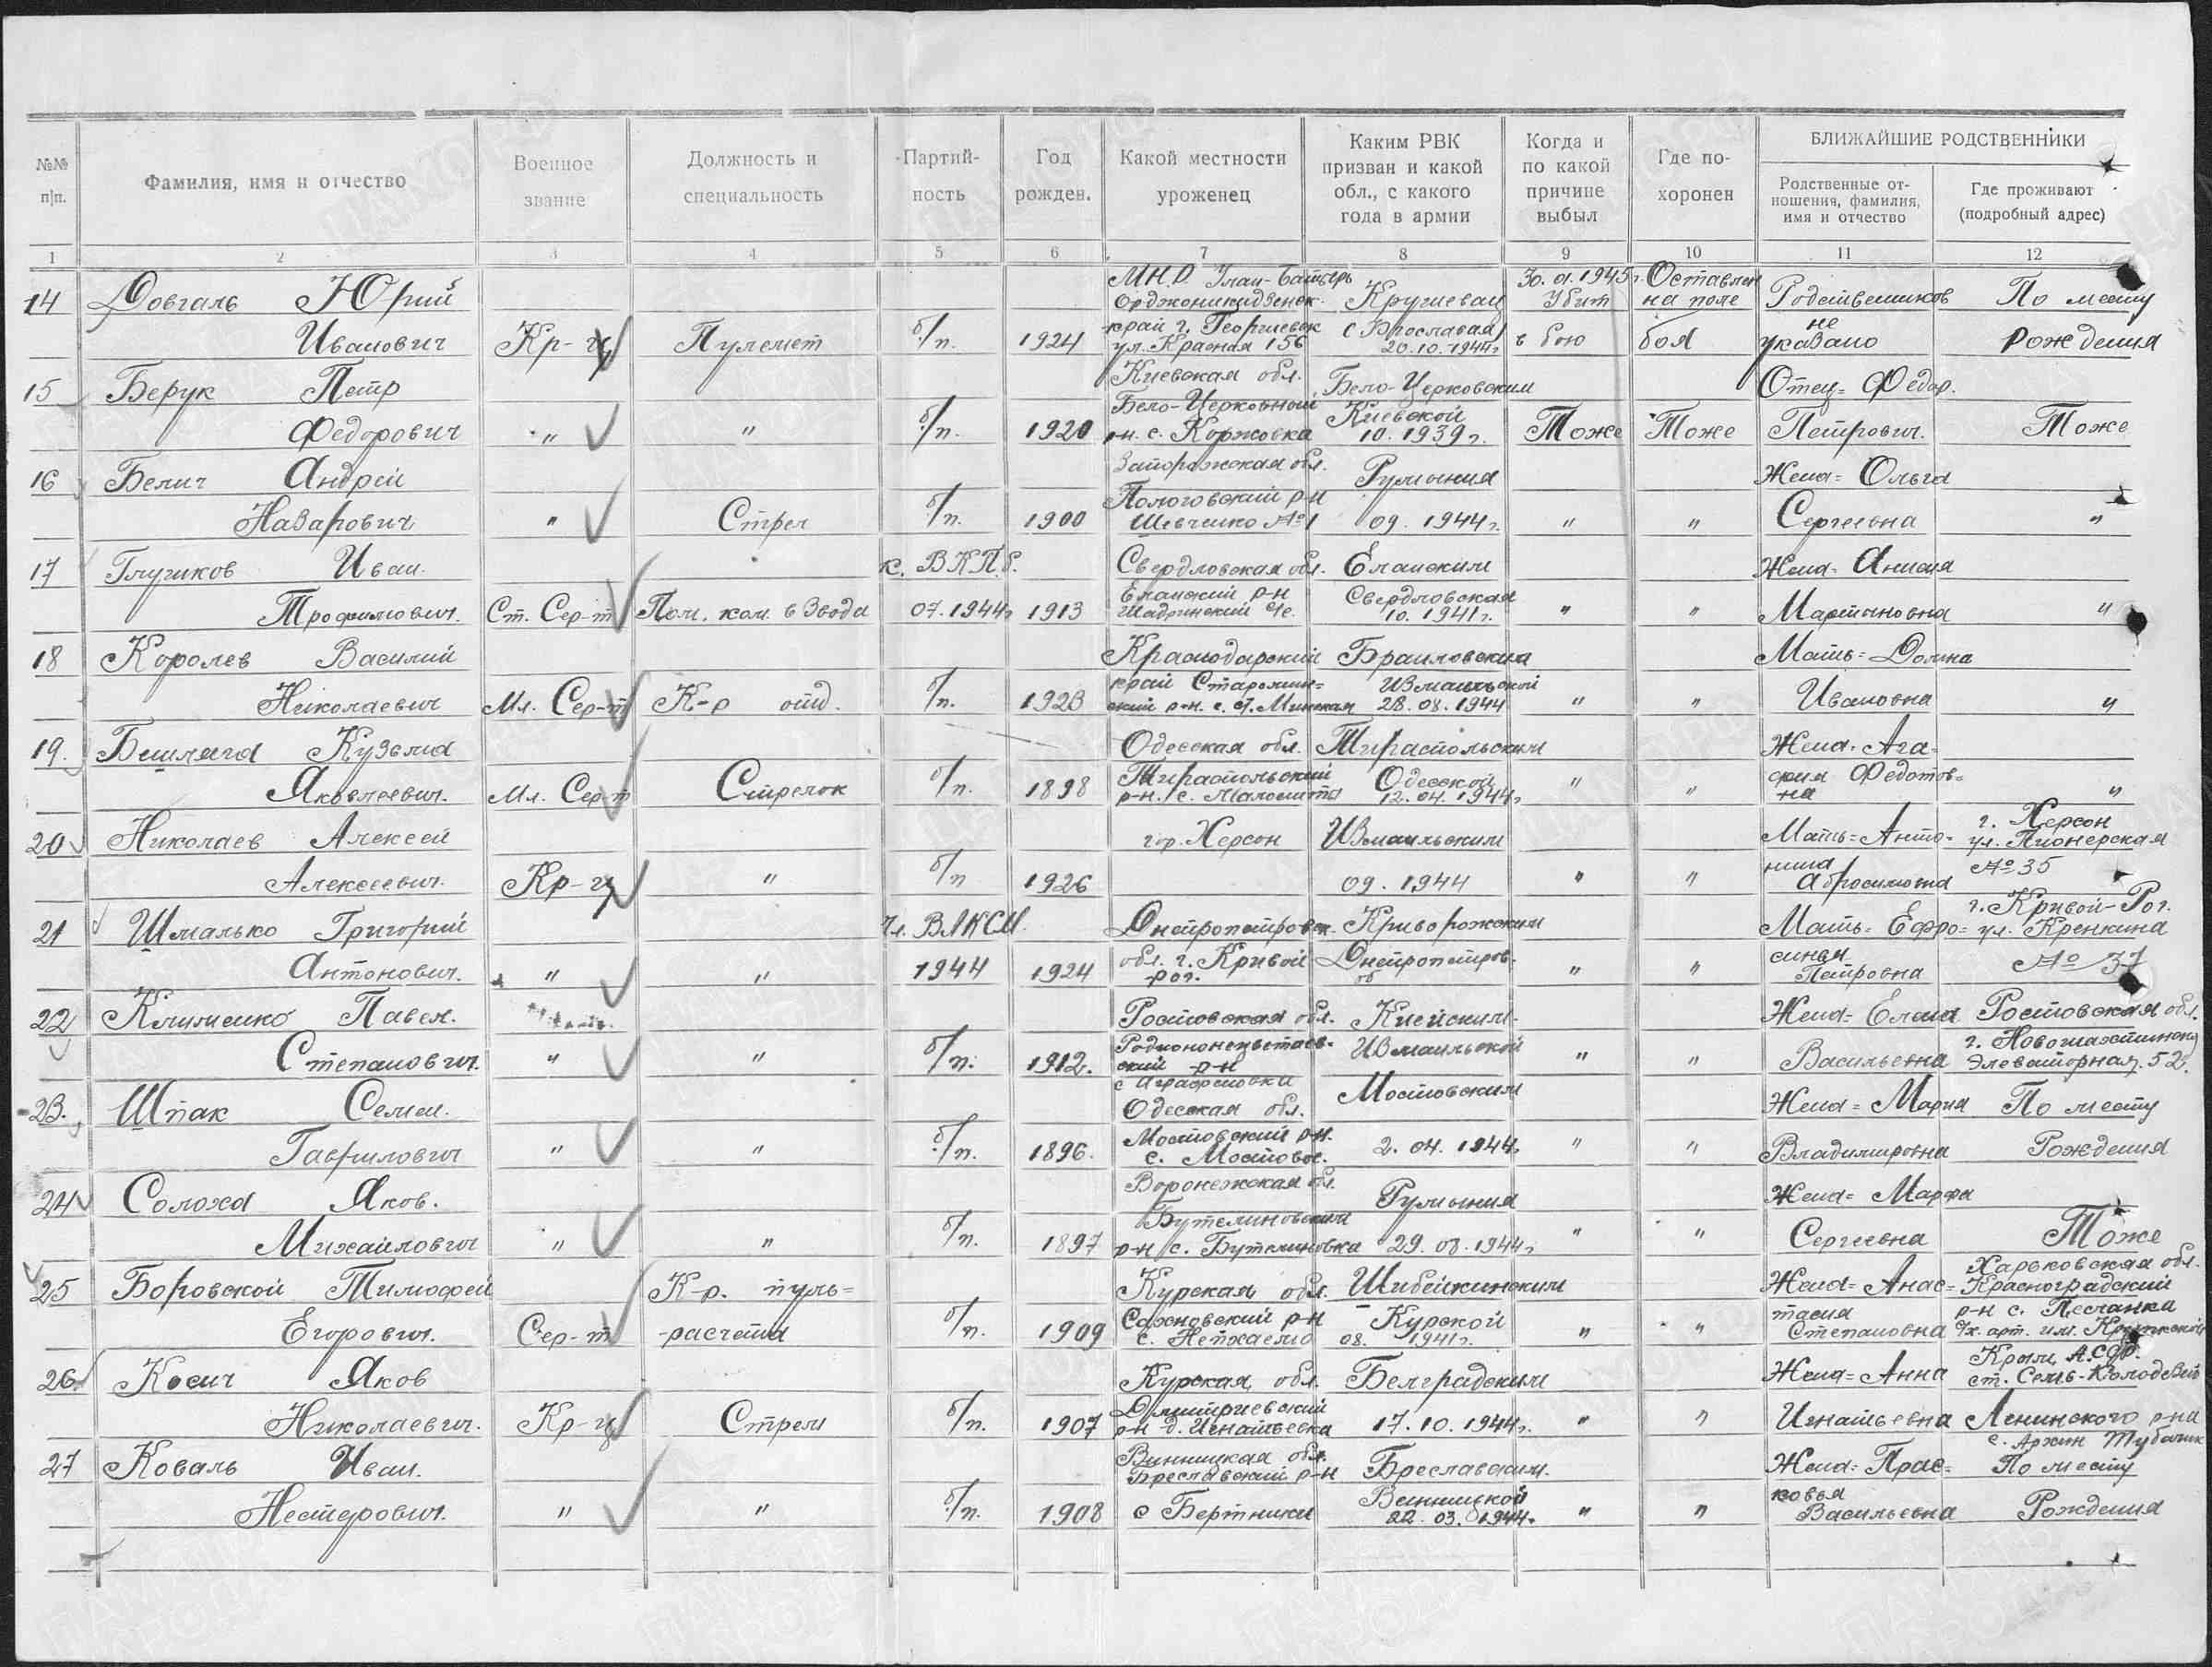 №№ п/п.
Фамилия, имя и отчество
Военное звание
Должность и специальность
Партий-ность
Год рожден.
Какой местности уроженец
Каким РВК призван и какой обл., с какого года в армии
Когда и по какой причине выбыл
Где по-хоронен
БЛИЖАЙШИЕ РОДСТВЕННИКИ
Родственные от-ношения, фамилия, имя и отчество
Где проживают (подробный адрес)
1 2 3 4 5 6 7 8 9 10 11 12
14 Довгаль Юрий Иванович Кр-ц Пулемет б/п. 1924 М.Н.Р. Улан-Батырь Орджоникидзенск. край г. Георгиевск ул. Красная 156 20.10.1944г. 30.01.1945г. Убит в бою Оставлен на поле боя Родственников не указано По месту рождения
15 Берук Петр Федорович " " б/п. 1920 Киевская обл. Бело-Церковный р-н. с. Коржовка Бело-Церковским Киевской 10.1939г. Тоже Тоже Отец = Федор. Петрович. Тоже
16 Белич Андрей Назарович " Стрел б/п. 1900 Запорожская обл. Пологовский р-н Шевченко №1 Румыния 09.1944г. " " Жена = Ольга Сергеевна "
17 Иван. Трофимович. Ст. Сер-т Пом. ком. взвода к. ВКП.б. 07.1944г 1913 Свердловская обл. Еланский р-н Еланским Свердловская 10.1941г. " " Жена = Анисия Мартыновна "
18 Королев Василий Николаевич Мл. Сер-т К-р отд. б/п. 1923 Краснодарский край Старомин-ский р-н. с. ст. Минская Браиловский Измаильской 28.08.1944 " " Мать = Домна Ивановна "
19. Бешляга Кузьма Яковлевич. Мл. Сер-т Стрелок б/п. 1898 Одесская обл. Тираспольский р-н. с. Тираспольским Одесской 12.04.1944г. " " Жена. Ага-фия Федотов-на "
20 Николаев Алексей Алексеевич. Кр-ц " б/п 1926 гор. Херсон Измаильским 09.1944 " " Мать = Анто-нина Абросимовна г. Херсон ул. Пионерская №35
21 Шмалько Григорий Антонович. " " Чл. ВЛКСМ. 1944 1924 Днепропетровск. обл. г. Кривой рог. Криворожским Днепропетров. об " " Мать = Ефро-синья Петровна г. Кривой-Рог. ул. №37
22 Клименко Павел. Степанович. " " б/п. 1912. Ростовская обл. ский р-н с Аграфеновка Измаильской " " Жена = Елена Васильевна Ростовская обл. г. Элеваторная. 52.
23. Шпак Семен. Гаврилович " " б/п. 1896. Одесская обл. Мостовский р-н. с. Мостовое. Мостовским 2.04.1944г. " " Жена = Мария Владимировна По месту Рождения
24 Солоха Яков. Михайлович " " б/п. 1897 Воронежская обл. Бутелиновский р-н с. Бутелиновка Румыния 29.08.1944г. " " Жена = Марфа Сергеевна Тоже
25 Боровской Тимофей Егорович. Сер-т К-р. пуль-расчета б/п. 1909 Курская обл. Сажновский р-н с. Шибекинским Курской 08. 1941г. " " Жена = Анас-тасия Степановна Харьковская обл. Красноградский р-н с. Песчанка
26. Косич Яков Николаевич. Кр-ц Стрел б/п. 1907 Курская обл. Дмитриевский р-н д. Игнатьевка Белградским 17.10.1944г. " " Жена = Анна Игнатьевна Крым А.ССР. ст. Семь-Колодезей Ленинского р-на
27 Коваль Иван. Нестерович. " " б/п. 1908 Винницкая обл. Бреславский р-н с Бертники Бреславским. Винницкой 22.03.1944г. " " Жена = Прас-ковья Васильевна По месту Рождения